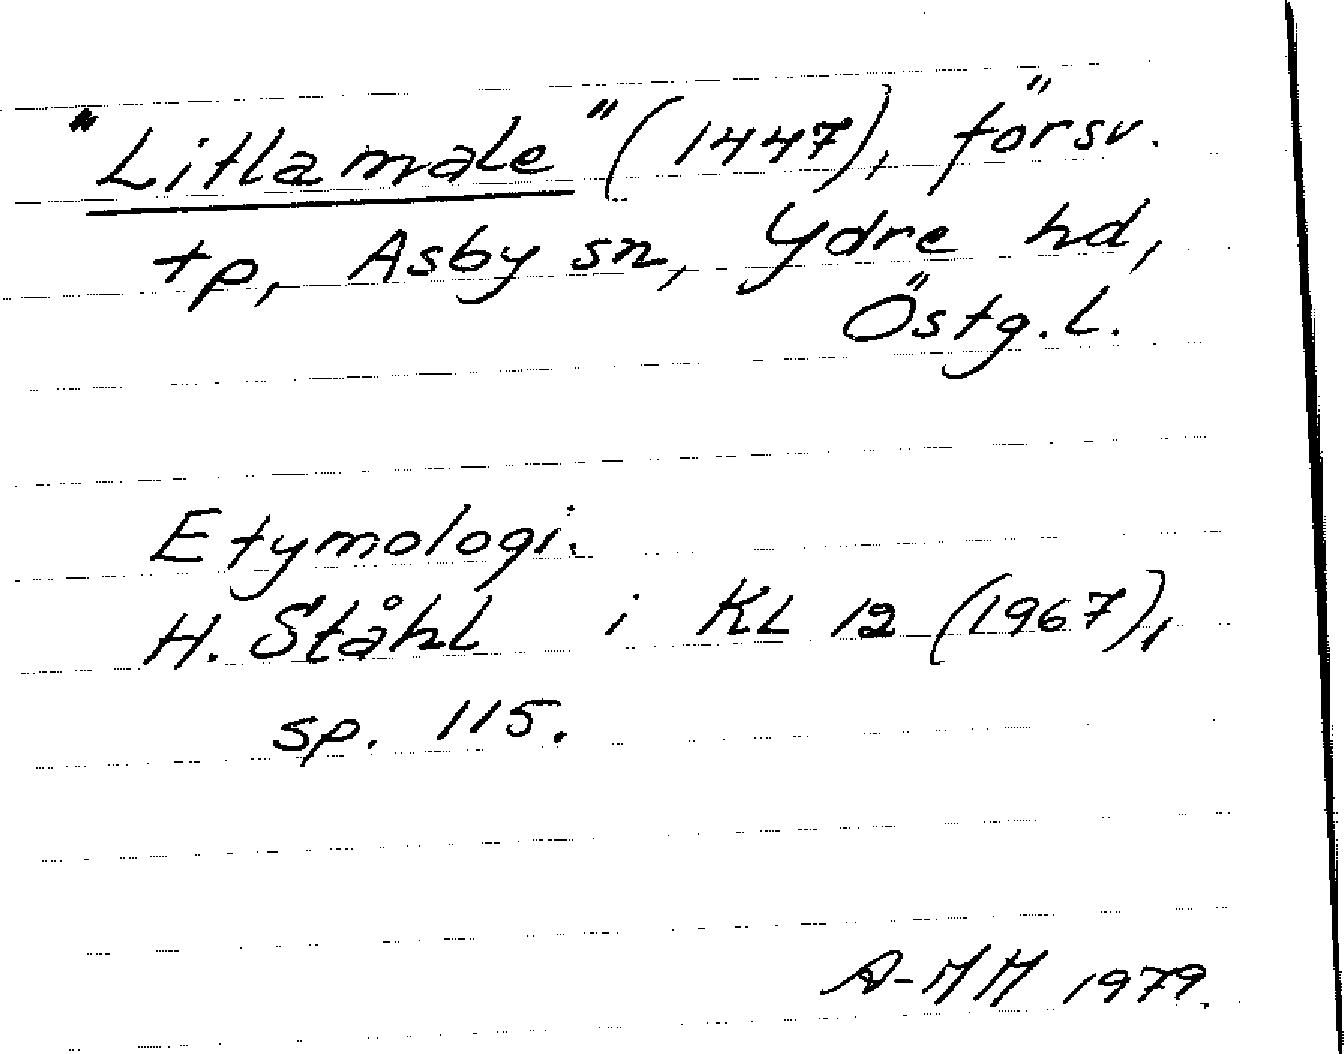 "Litlamale" (1447), försv.
tp, Asby sn, Ydre hd,
Östg.l.
Etymologi.
H. Ståhl i KL 12 (1967),
sp. 115.
A-MM 1979.